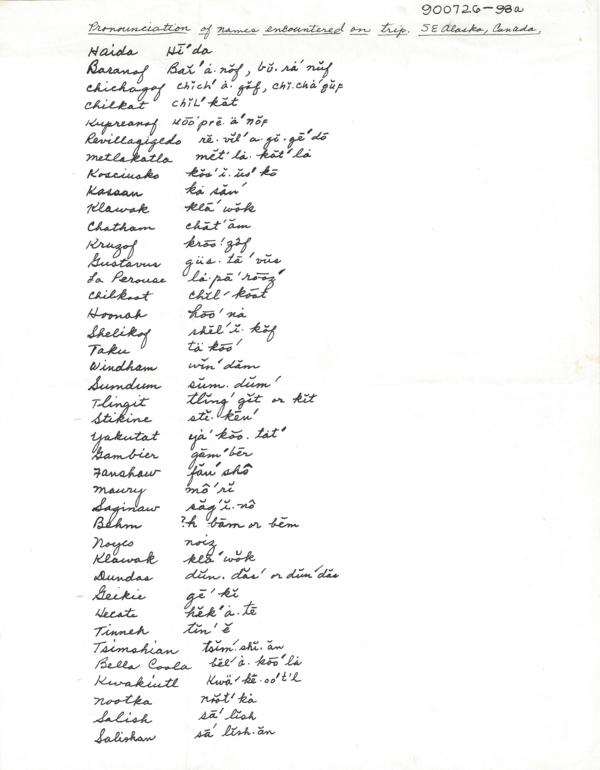 900726-98a
Pronounciation of names encountered on trip. SE Alaska, Canada,
Haida Hī′da
Baranof Băr′á.nŏf, bŭ.rä′nŭf
Chichagof chĭch′á.gŏf, chĭ.chä′gŭf
Chilkat chĭl′kăt
Kupreanof kōō′prē.ä′nŏf
Revillagigedo rĕ.vĭl′a.gĭ.gē′dō
Metlakatla mĕt′lá.kăt′lá
Kosciusko kŏs′ĭ.ŭs′kō
Kasaan ká săn′
Klawak klā′wŏk
Chatham chăt′ăm
Kruzof krōō′zŏf
Gustavus gŭs.tā′vŭs
La Perouse lá.pā′rōōz′
Chilkoot chĭl′kōōt
Hoonah hōō′ná
Shelikof shĕl′ĭ.kŏf
Taku tä kōō′
Windham wĭn′dăm
Sumdum sŭm.dŭm′
Tlingit tlĭng′gĭt or kĭt
Stikine stĭ.kēn′
Yakutat yá′kōō.tát′
Gambier găm′bēr
Fanshaw făn′shô
Maury mô′rĭ
Saginaw săg′ĭ.nô
Behm ?h bām or bēm
Noyes noiz
Klawak klā′wŏk
Dundas dŭn.dăs′ or dŭn′dăs
Geikie gē′kĭ
Hecate hĕk′á.tē
Tinneh tĭn′ĕ
Tsimshian tsĭm′shĭ.ăn
Bella Coola bĕl′á.kōō′lá
Kwakiutl Kwä′kē.ōō′t'l
Nootka nŏŏt′ká
Salish sā′lĭsh
Salishan sā′lĭsh.ăn